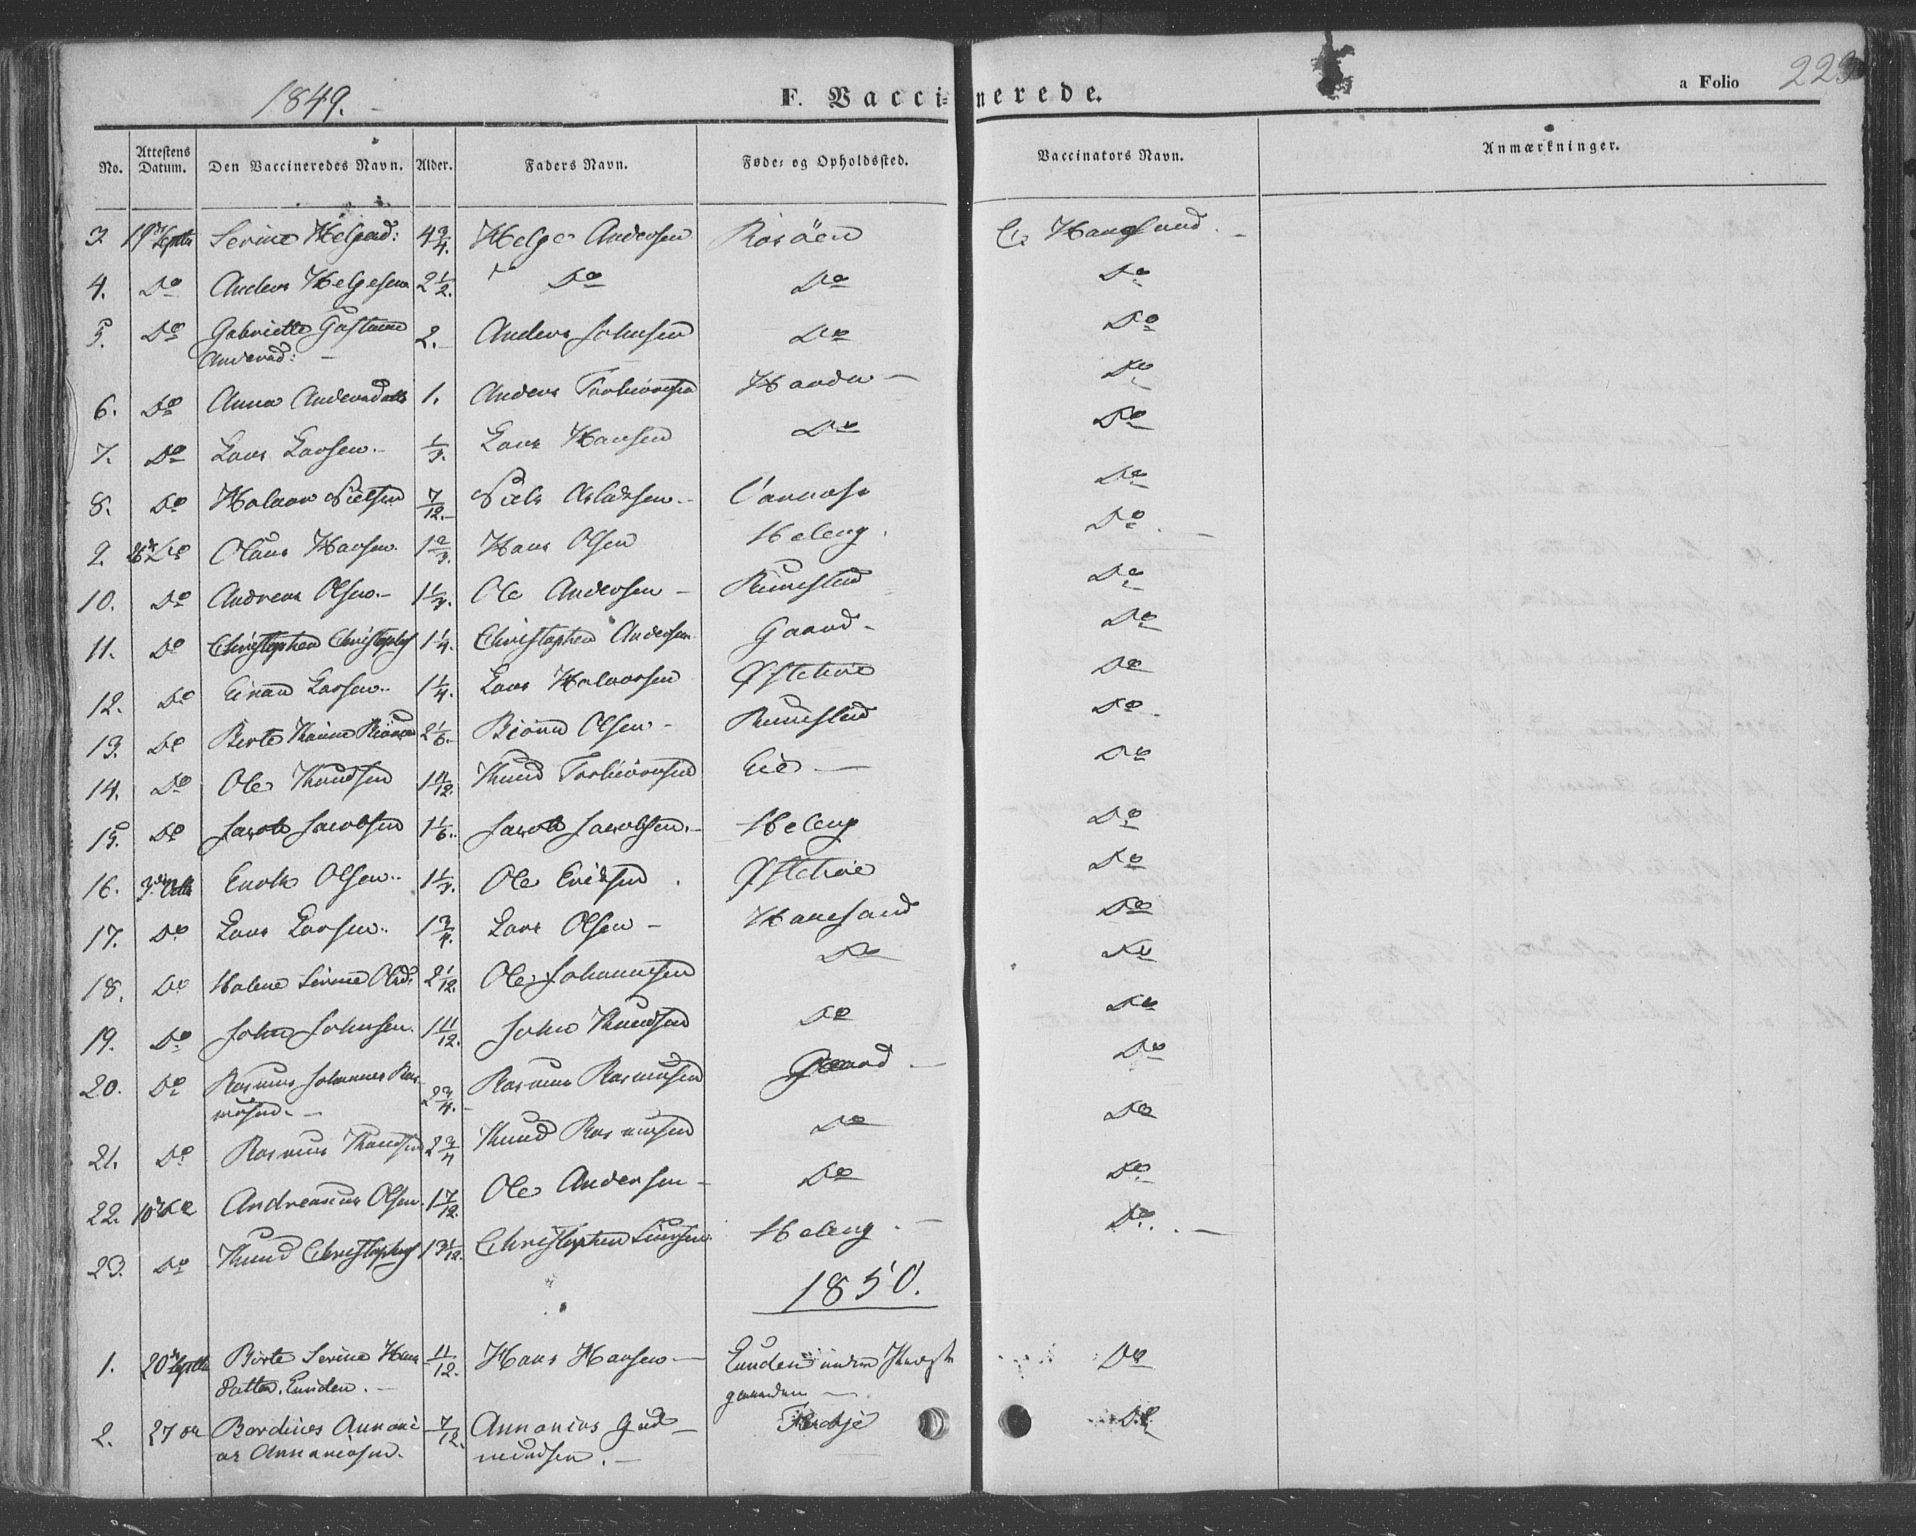 1849.
F. Vaccinerede.
a Folio 223
No. Attestens Datum. Den Vaccineredes Navn. Alder. Faders Navn. Føde- og Opholdssted. Vaccinators Navn. Anmærkninger.
3. 19de Septbr Serine Helgesd: 4 3/4. Helge Andersen Rosöen Haugsund.
4. Do Anders Helgesen 2 1/2. Do Do Do
5. Do Gabrielle Gustava 2. Anders Johnsen Do Do
Andersd:
6. Do Anna Andersdatt 1. Anders Torbiörnsen Do
7. Do Lars Larsen. 1/3. Lars Hansen Do Do
8. Do Halvor Nielsen 7/12. Niels Aslaksen Do
9. 26de Do Olaus Hansen 1 2/3. Hans Olsen Heleng. Do
10. Do Andreas Olsen 1 1/4. Ole Andersen Rimestad Do
11. Do Christophen Christophs 1 1/4. Christophen Andersen Gaard Do
12. Do Larsen 1 1/4. Lars Halvorsen Do
13. Do Berte Biörnsd 2 1/6. Biörn Olsen Rimestad Do
14. Do Ole Knudsen 1 11/12. Knud Torbiörnsen Eie Do
15. Do Jacob Jacobsen 1 1/6. Jacob Jacobsen Heleng Do
16. 3die Octbr Enok Olsen 1 1/4. Ole Eriksen Do
17. Do Lars Larsen 1 3/4. Lars Olsen Haugsund Do
18. Do Halene Serine Olsd: 2 1/12. Ole Johannesen Do Do
19. Do John Johnsen. 1 11/12. John Knudsen Do Do
20. Do Rasmus Johannes Ras- 2 3/4. Rasmus Rasmusen Gaard Do
musen
21. Do Rasmus Knudsen 2 3/4 Knud Rasmusen Do Do
22. 10de Do Andreanus Olsen 1 7/12. Ole Andersen Do Do
23. Do Knud Christophs 13 1/12. Christophen Heleng. Do
1850.
1. 20de Septbr Birte Serine Hans 11/12. Hans Hansen Lunden under Do
datter, Lunden. gaarden
2. 27 Do Bardines Annani- 7/12. Annanias Gud- Do
as Annaniasen. mundsen.